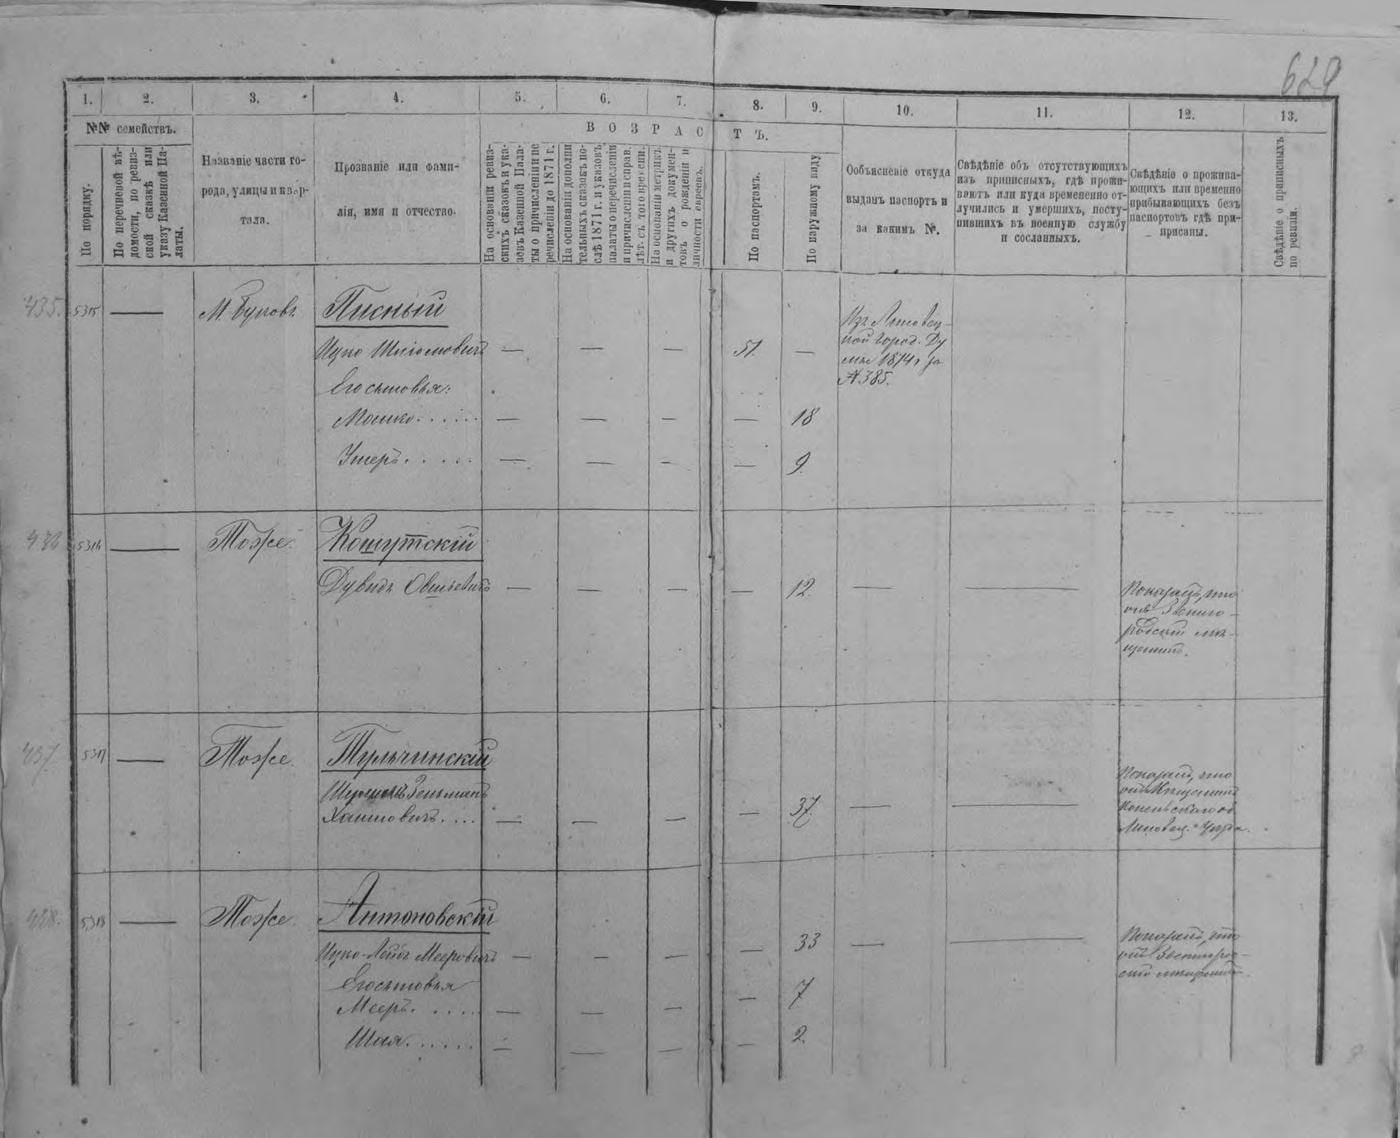 629
1. 2. 3. 4. 5. 6. 7. 8. 9. 10. 11. 12. 13.
№№ семействъ.
ВОЗРАСТЪ.
По порядку.
По перечневой вѣ-
домости, по ревиз-
ской сказкѣ или
указу Казенной Па-
латы.
Названіе части го-
рода, улицы и квар-
тала.
Прозваніе или фами-
лія, имя и отчество.
На основаніи ревиз-
скихъ сказокъ и ука-
зовъ Казенной Пала-
ты о причисленіи и пе
речисленіи до 1871 г.
На основаніи дополни
тельныхъ сказокъ по-
слѣ 1871 г. и указовъ
палаты о перечисленіи
и причисленіи и справ.
лѣт. съ того времени.
На основаніи метрикъ
и другихъ докумен-
товъ о рожденіи и
личности евреевъ.
По паспортамъ.
По наружному виду
Объясненіе откуда
выданъ паспортъ и
за какимъ №.
Свѣдѣніе объ отсутствующихъ
изъ приписныхъ, гдѣ прожи-
ваютъ или куда временно от-
лучились и умершихъ, посту-
пившихъ въ военную службу
и сосланныхъ.
Свѣдѣніе о прожива-
ющихъ или временно
прибывающихъ безъ
паспортовъ гдѣ при-
приcаны.
Свѣдѣніе о приписныхъ
по ревизіи.
435. 5315 М. Буковъ Писный
Ицко Шліомовичъ 51.
Изъ Липовец-
кой Город. Ду
мы 1874 г за
№ 385.
Его сыновья:
Мошко 18
Ушеръ 9.
436 5316 Тоже. Кошутскій
Дувидъ Овшіевичъ 12.
Показалъ, что
онъ Звениго-
родскій мѣ-
щанинъ.
437. 5317 Тоже Тульчинскій
Зельманъ
Хаимовичъ 37.
Показалъ, что
онъ Мѣщанинъ
Липовец. Уѣзда.
438. 5318 Тоже Антоновскій
Ицко-Лейбъ Мееровичъ 33
Показалъ, что
онъ Звенигород-
скій мѣщанинъ.
Его сыновья
Мееръ 7
Шая 2.